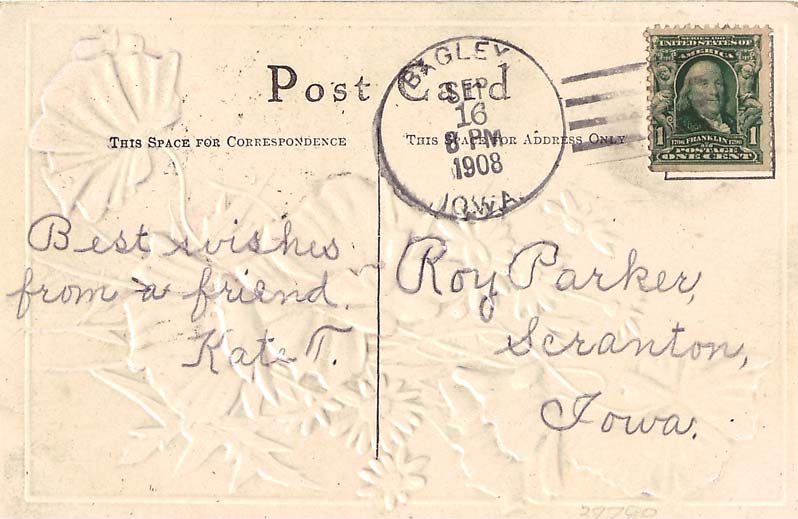 Post Card
THIS SPACE FOR CORRESPONDENCE
THIS SPACE FOR ADDRESS ONLY
BAGLEY
SEP
16
8 PM
1908
IOWA
SERIES 1902
UNITED STATES OF
AMERICA
1 FRANKLIN 1
1706 1790
POSTAGE
ONE CENT
Best wishes
from a friend
Kate T.
Roy Parker,
Scranton,
Iowa.